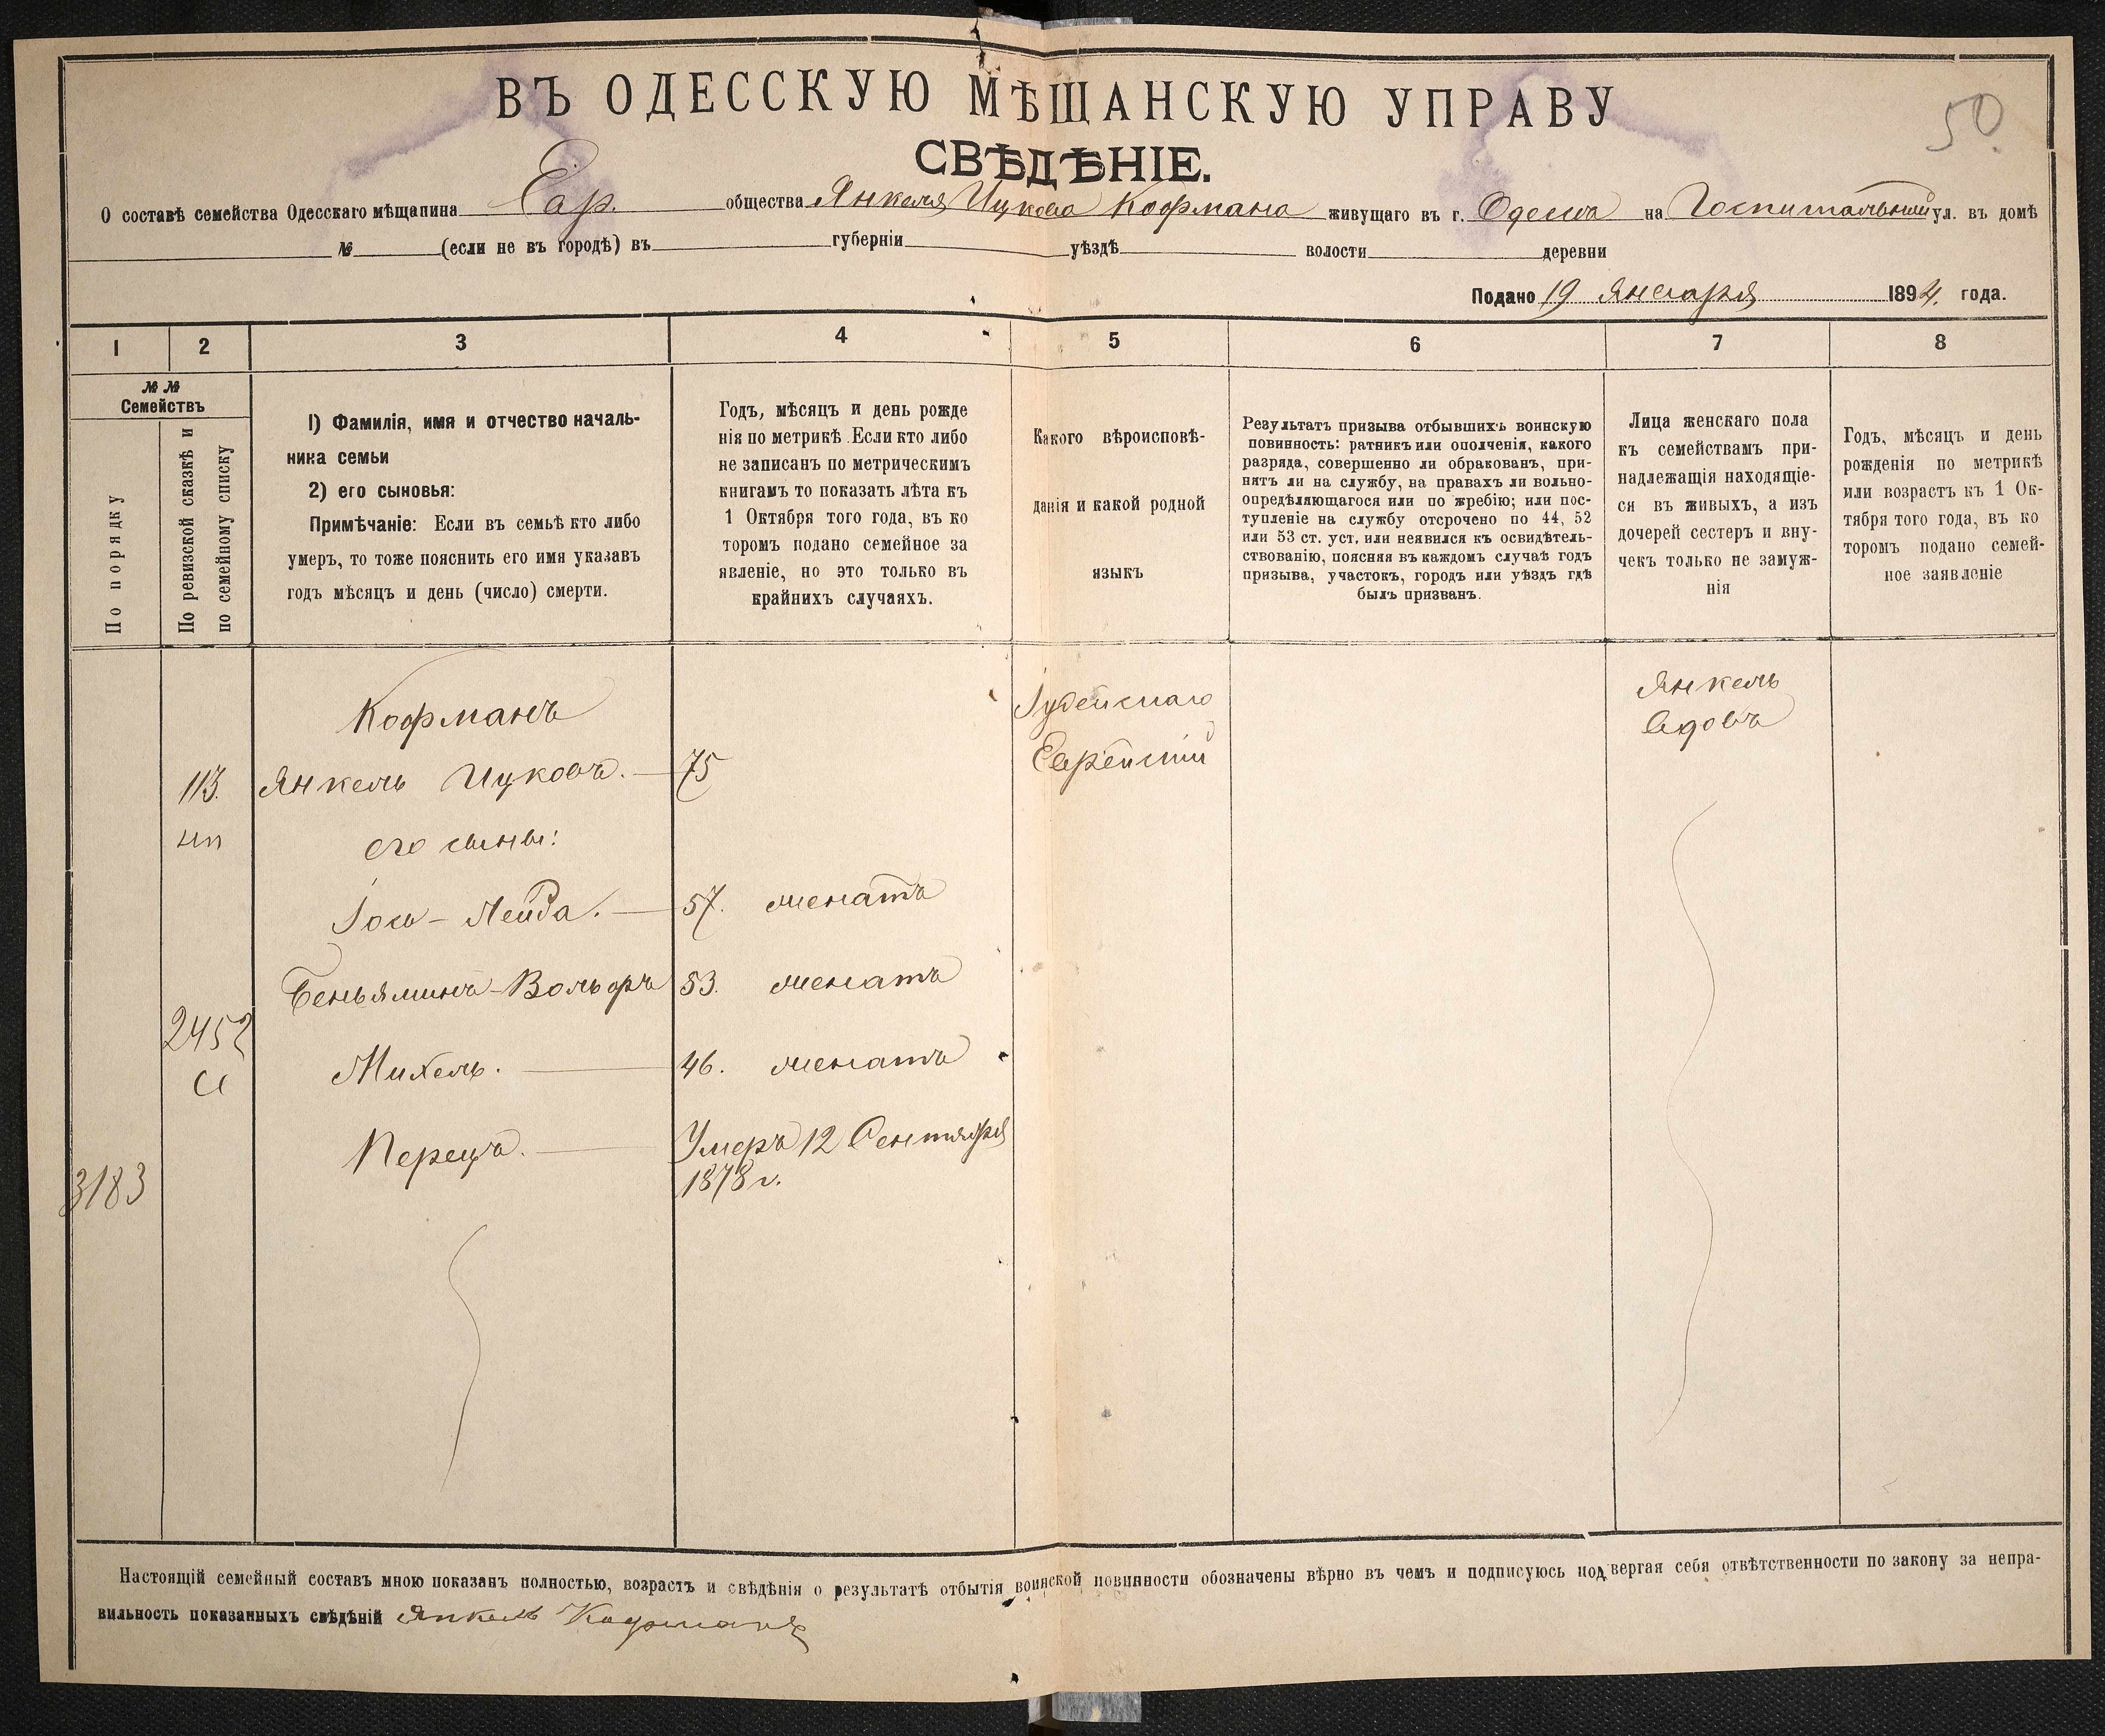 ВЪ ОДЕССКУЮ МѢЩАНСКУЮ УПРАВУ
50.
СВѢДѢНІЕ.
О составѣ семейства Одесскаго мѣщанина Евр. общества Янкеля Ицкова Кофмана живущаго въ г. Одесса на Госпитальной ул. въ домѣ
№ (если не въ городѣ) въ губерніи уѣздѣ волости деревни
Подано 19 Января 1894. года.
1 2 3 4 5 6 7 8
№ №
Семействъ
По порядку
По ревизской сказкѣ и
по семейному списку
1) Фамилія, имя и отчество началь-
ника семьи
2) его сыновья:
Примѣчаніе: Если въ семьѣ кто либо
умеръ, то тоже пояснить его имя указавъ
годъ мѣсяцъ и день (число) смерти.
Годъ, мѣсяцъ и день рожде
нія по метрикѣ. Если кто либо
не записанъ по метрическимъ
книгамъ то показать лѣта къ
1 Октября того года, въ ко
торомъ подано семейное за
явленіе, но это только въ
крайнихъ случаяхъ.
Какого вѣроисповѣ-
данія и какой родной
языкъ
Результатъ призыва отбывшихъ воинскую
повинность: ратникъ или ополченія, какого
разряда, совершенно ли обракованъ, при-
нятъ ли на службу, на правахъ ли вольно-
опредѣляющагося или по жребію; или пос-
тупленіе на службу отсрочено по 44, 52
или 53 ст. уст. или неявился къ освидѣтель-
ствованію, поясняя въ каждомъ случаѣ годъ
призыва, участокъ, городъ или уѣздъ гдѣ
былъ призванъ.
Лица женскаго пола
къ семействамъ при-
надлежащія находящіе-
ся въ живыхъ, а изъ
дочерей сестеръ и вну-
чекъ только не замуж-
нія
Годъ, мѣсяцъ и день
рожденія по метрикѣ
или возрастъ къ 1 Ок-
тября того года, въ ко
торомъ подано семей-
ное заявленіе
Кофманъ
Іудейскаго
Еврейскій
Янкель
вдовъ
113. Янкель Ицковъ. 75
его сыновья:
Іось-Лейба. 57. женатъ
Беньяминъ-Вольфъ 53. женатъ
2452
Михель. 46. женатъ
Перецъ. Умеръ 12 Сентября
1878 г.
3183
Настоящій семейный составъ мною показанъ полностью, возрастъ и свѣдѣнія о результатѣ отбытія воинской повинности обозначены вѣрно въ чемъ и подписуюсь подвергая себя отвѣтственности по закону за непра-
вильность показанныхъ свѣдѣній Янкель Кофманъ